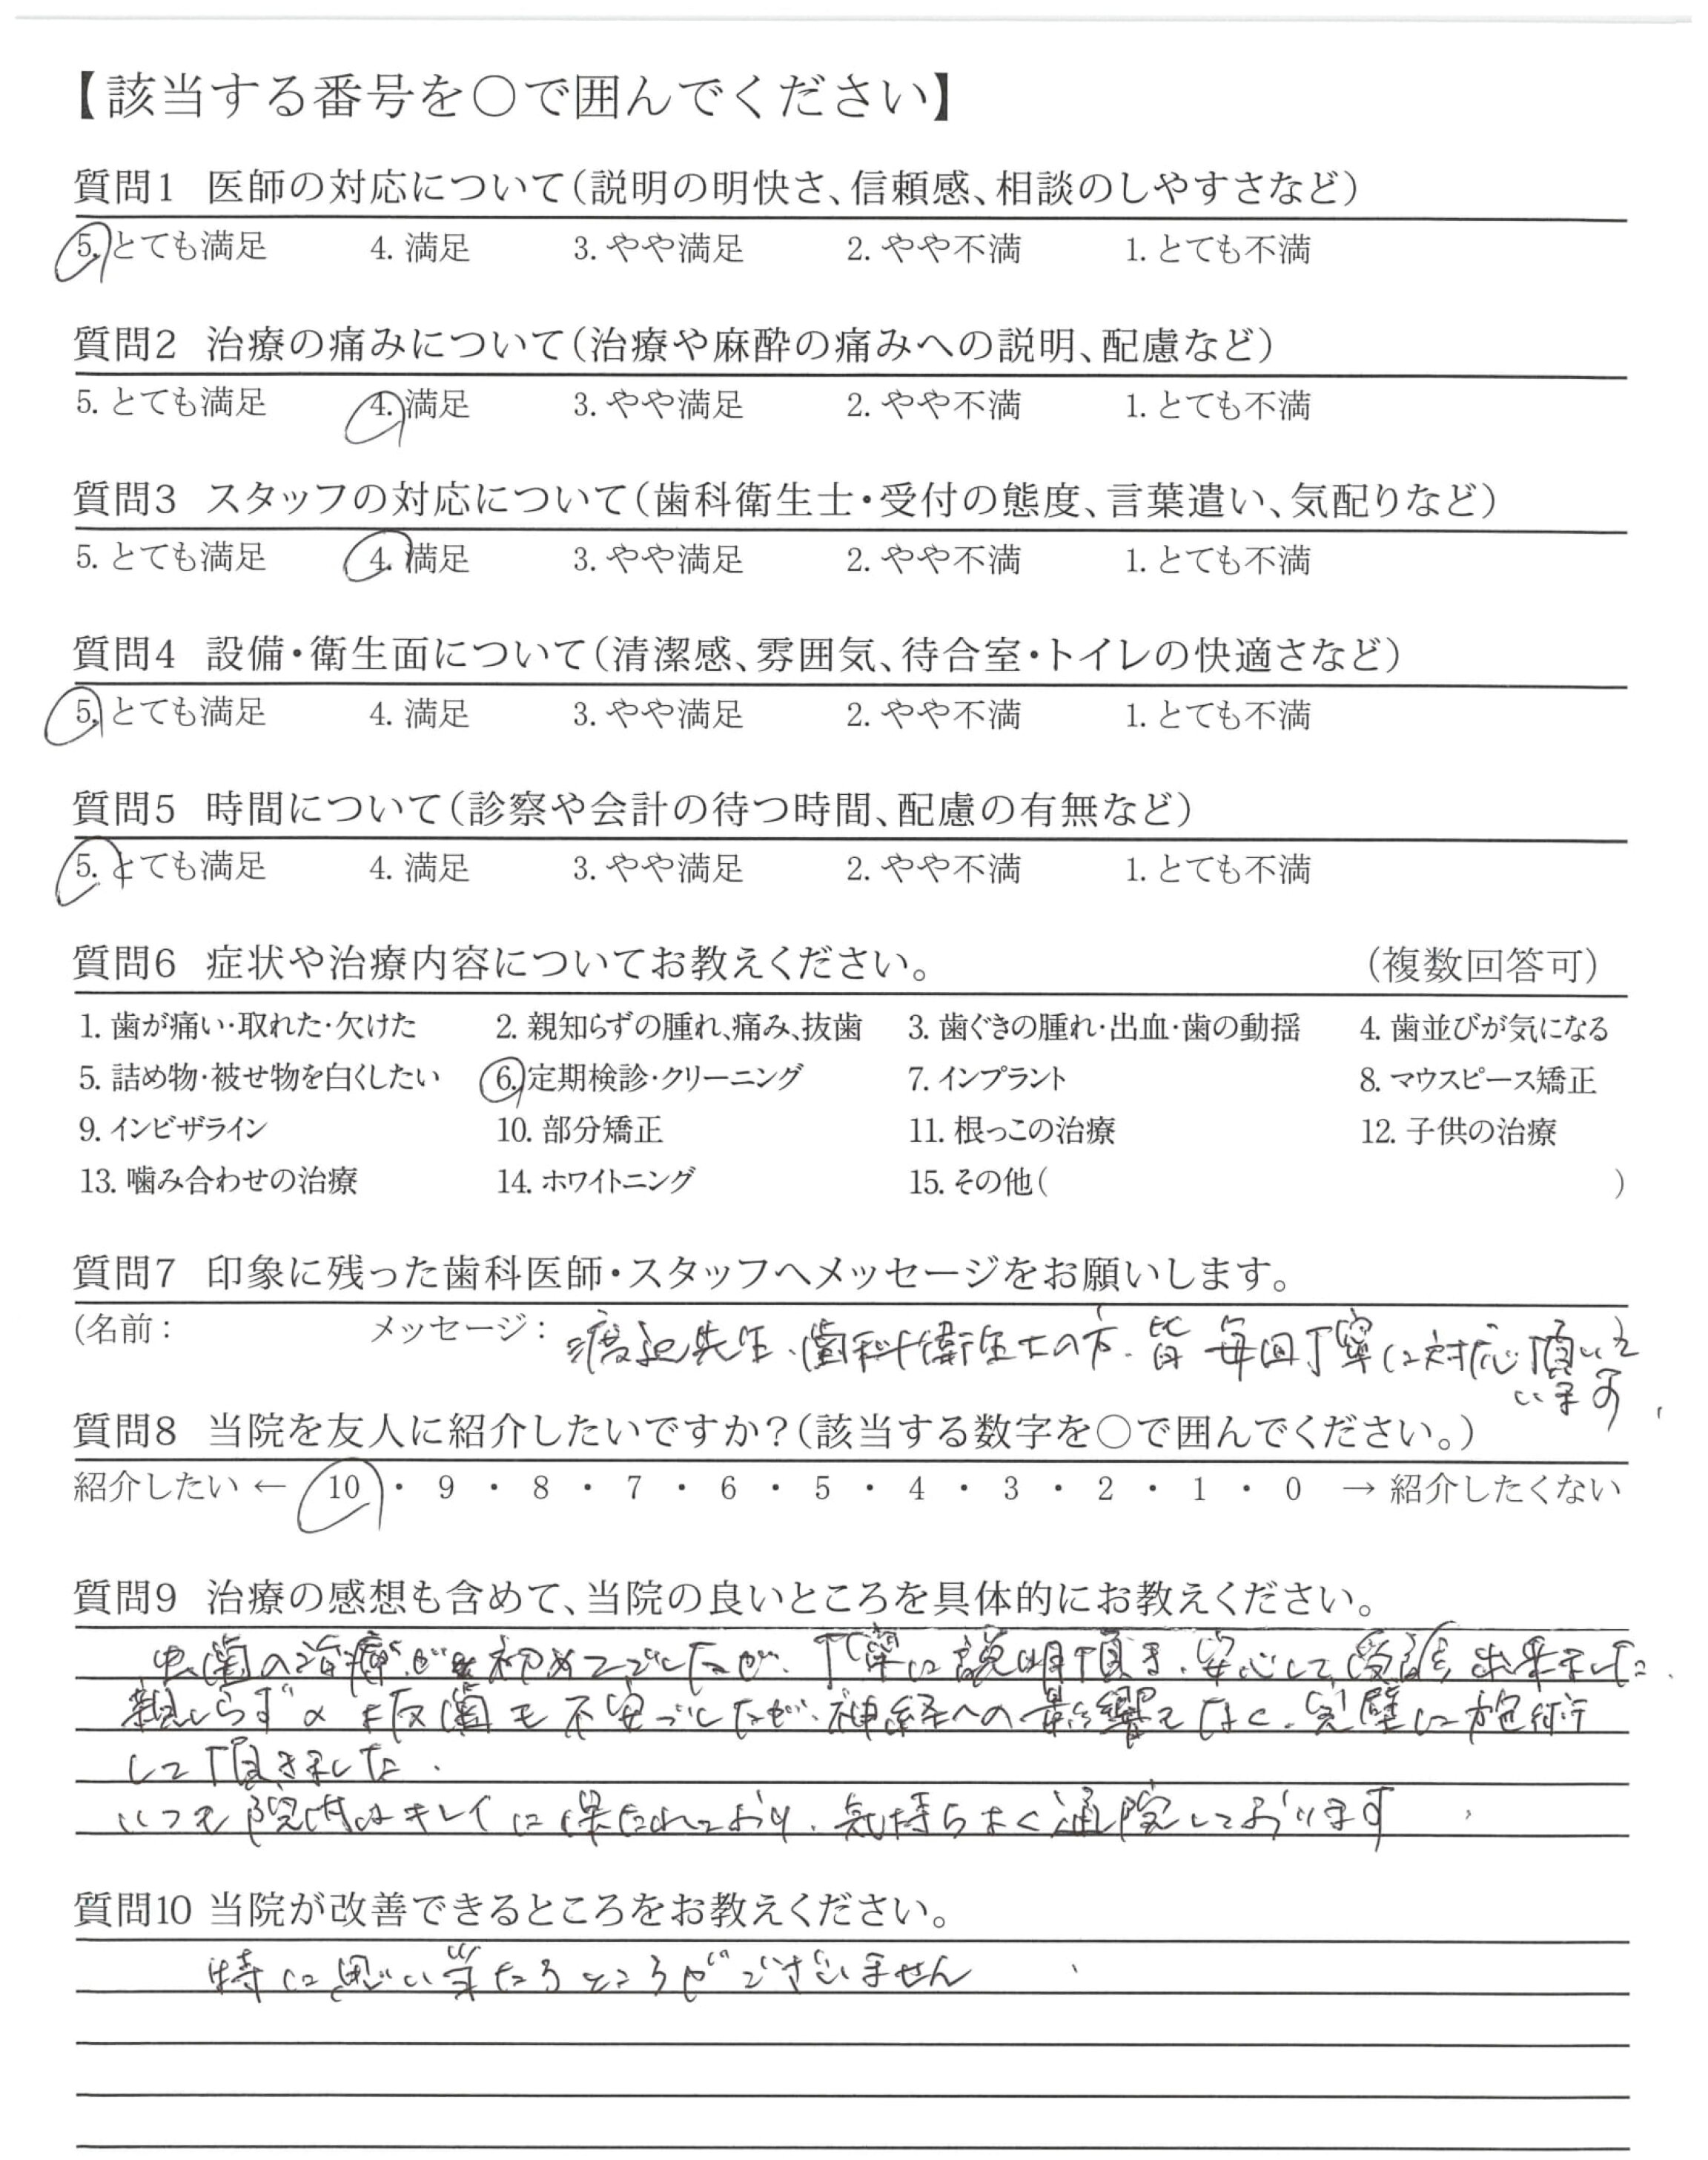 【該当する番号を○で囲んでください】
質問1 医師の対応について(説明の明快さ、信頼感、相談のしやすさなど)
5. とても満足 4. 満足 3. やや満足 2. やや不満 1. とても不満
質問2 治療の痛みについて(治療や麻酔の痛みへの説明、配慮など)
5. とても満足 4. 満足 3. やや満足 2. やや不満 1. とても不満
質問3 スタッフの対応について(歯科衛生士・受付の態度、言葉遣い、気配りなど)
5. とても満足 4. 満足 3. やや満足 2. やや不満 1. とても不満
質問4 設備・衛生面について(清潔感、雰囲気、待合室・トイレの快適さなど)
5. とても満足 4. 満足 3. やや満足 2. やや不満 1. とても不満
質問5 時間について(診察や会計の待つ時間、配慮の有無など)
5. とても満足 4. 満足 3. やや満足 2. やや不満 1. とても不満
質問6 症状や治療内容についてお教えください。 (複数回答可)
1. 歯が痛い・取れた・欠けた 2. 親知らずの腫れ、痛み、抜歯 3. 歯ぐきの腫れ・出血・歯の動揺 4. 歯並びが気になる
5. 詰め物・被せ物を白くしたい 6. 定期検診・クリーニング 7. インプラント 8. マウスピース矯正
9. インビザライン 10. 部分矯正 11. 根っこの治療 12. 子供の治療
13. 噛み合わせの治療 14. ホワイトニング 15. その他( )
質問7 印象に残った歯科医師・スタッフへメッセージをお願いします。
(名前: メッセージ: 渡辺先生、歯科衛生士の方、皆 毎回丁寧に対応頂いて
います。
質問8 当院を友人に紹介したいですか?(該当する数字を○で囲んでください。)
紹介したい ← 10 ・ 9 ・ 8 ・ 7 ・ 6 ・ 5 ・ 4 ・ 3 ・ 2 ・ 1 ・ 0 → 紹介したくない
質問9 治療の感想も含めて、当院の良いところを具体的にお教えください。
虫歯の治療が初めてでしたが、丁寧に説明頂き、安心して受診出来ました。
親しらずの抜歯も不安でしたが、神経への影響もなく、完璧に施術
して頂きました。
いつも院内はキレイに保たれており、気持ちよく通院しております。
質問10 当院が改善できるところをお教えください。
特に思い当たるところがございません。